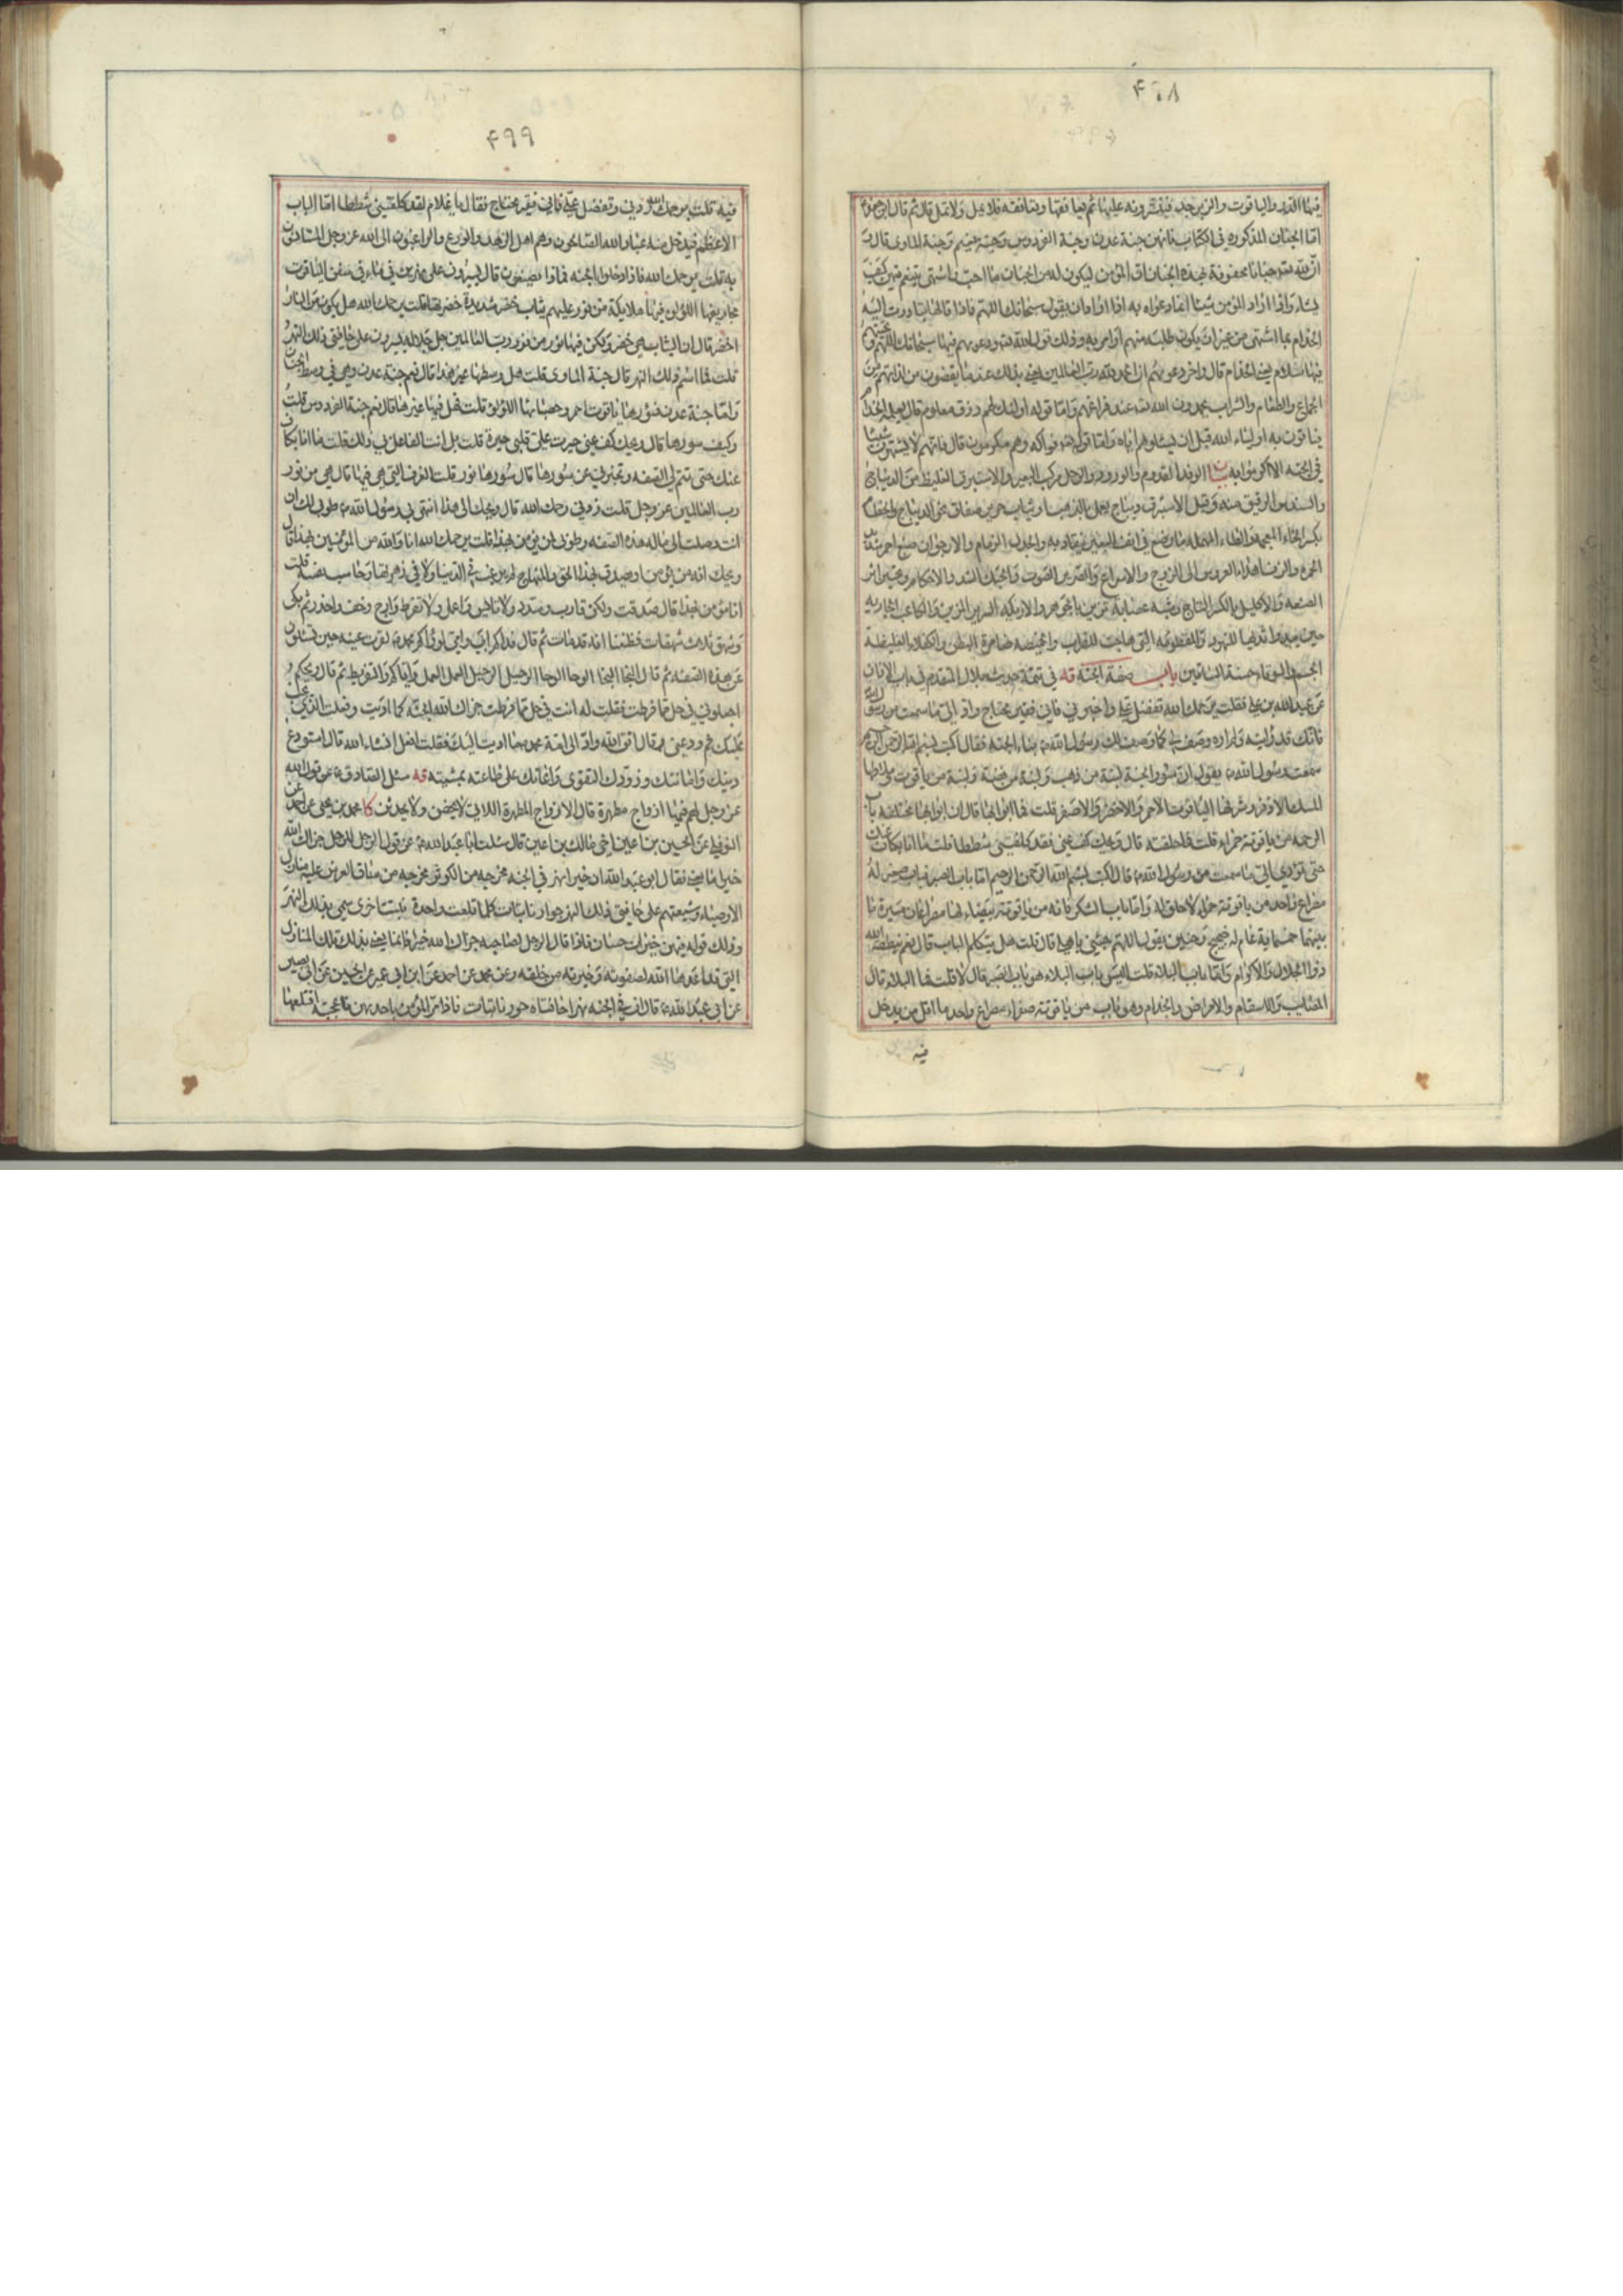 ۴۹۸
فيها الدر والياقوت والزبرجد فينثرونه عليها ثم يعانقها وتعانقه فلا يمل ولا تمل قال ثم قال ابو جعفر
اما الجنان المذكورة في الكتاب فانهن جنة عدن وجنة الفردوس وجنة نعيم وجنة الماوى قال و
ان لله جنانا محفوفة بهذه الجنان وان المؤمن ليكون له من الجنان ما احب واشتهى يتنعم فيهن كيف
يشاء واذا اراد المؤمن شيئا انما دعواه به اذا اراد ان يقول سبحانك اللهم فاذا قالها تبادرت اليه
الخدام بما اشتهى من غير ان يكون طلبه منهم او امر به وذلك قول الله دعويهم فيها سبحانك اللهم وتحيتهم
فيها سلام يعني الخدام قال واخر دعويهم ان الحمد لله رب العالمين يعني بذلك عند ما يقضون من لذاتهم من
الجماع والطعام والشراب يحمدون الله عند فراغهم واما قوله اولئك لهم رزق معلوم قال يعلمه الخدام
فياتون به اولياء الله قبل ان يسئلوهم اياه واما قوله فواكه وهم مكرمون قال فانهم لا يشتهون شيئا
في الجنة الا اكرموا به الوفد القدوم والورود والرحل مركب البعير والاستبرق الغليظ من الديباج
والسندس الرقيق منه وقيل الاستبرق ديباج يعمل بالذهب او ثياب حرير صفاق نحو الديباج والخطام
بكسر الخاء المعجمة والطاء المهملة ما يوضع في انف البعير ليقاد به والجدل الزمام والارجوان صبغ احمر شديد
الحمرة والزف اهداء العروس الى الزوج والاسراع والصرير الصوت والحبك الشد والاحكام وتحسين اثر
الصنعة والاكليل بالكسر التاج وشبه عصابة تزين بالجوهر والاريكة السرير المزين والكاعب الجارية
حين يبدو ثديها للنهود
الجسم باب صفة الجنة قه في تتمة حديث بلال المتقدم في باب الاذان
عن عبد الله بن علي فقلت يرحمك الله تفضل علي واخبرني فاني فقير محتاج واد الي ما سمعت من رسول الله
فانك قد رايته ولم اره وصف لي كما وصف لك رسول الله بناء الجنة فقال اكتب بسم الله الرحمن الرحيم
سمعت رسول الله يقول ان سور الجنة لبنة من ذهب ولبنة من فضة ولبنة من ياقوت وملاطها
المسك الاذفر وشرفها الياقوت الاحمر والاخضر والاصفر قلت فما ابوابها قال ان ابوابها مختلفة باب
الرحمة من ياقوتة حمراء قلت فما حلقته قال ويحك كف عني فقد كلفتني شططا قلت ما انا بكاف عنك
حتى تؤدي الي ما سمعت من رسول الله قال اكتب بسم الله الرحمن الرحيم اما باب الصبر فباب صغير له
مصراع واحد من ياقوتة حمراء لا حلق له واما باب الشكر فانه من ياقوتة بيضاء لها مصراعان مسيرة ما
بينهما خمسمائة عام له ضجيج وحنين يقول اللهم جئني باهلي قال قلت هل يتكلم الباب قال نعم ينطقه الله
ذو الجلال والاكرام واما باب البلاء قلت اليس باب البلاء هو باب الصبر قال لا قلت فما البلاء قال
المصائب والاسقام والامراض والجذام وهو باب من ياقوتة صفراء مصراع واحد ما اقل من يدخل
فيه
۴۹۹
فيه قلت يرحمك الله زدني وتفضل علي فاني فقير محتاج فقال يا غلام لقد كلفتني شططا اما الباب
الاعظم فيدخل منه عباد الله الصالحون وهم اهل الزهد والورع والراغبون الى الله عز وجل المستانسون
به قلت يرحمك الله فاذا دخلوا الجنة فماذا يصنعون قال يسيرون على نهرين في ماء في سفن الياقوت
مجاذيفها اللؤلؤ فيها ملائكة من نور عليهم ثياب خضر شديدة خضرتها قلت يرحمك الله هل يكون من النور
اخضر قال ان الثياب هي خضر ولكن فيها نور من نور رب العالمين جل جلاله يسيرون على حافتي ذلك النهر
قلت فما اسم ذلك النهر قال جنة الماوى قلت هل وسطها غير هذا قال نعم جنة عدن وهي في وسط الجنان
واما جنة عدن فسورها ياقوت احمر وحصباؤها اللؤلؤ قلت فهل فيها غيرها قال نعم جنة الفردوس قلت
وكيف سورها قال ويحك كف عني حيرت على قلبي قلت بل انت الفاعل بي ذلك قلت ما انا بكاف
عنك حتى تتم لي الصفة وتخبرني عن سورها قال سورها نور قلت الغرف التي هي فيها قال هي من نور
رب العالمين عز وجل قلت زدني رحمك الله قال ويحك الى هذا انتهى بي رسول الله طوبى لك ان
انت وصلت الى ماله هذه الصفة وطوبى لمن يؤمن بهذا قلت يرحمك الله انا والله من المؤمنين بهذا قال
ويحك انه من يؤمن او يصدق بهذا الحق والمنهاج لم يرغب في الدنيا ولا في زهرتها وحاسب نفسه قلت
انا مؤمن بهذا قال صدقت ولكن قارب وسدد ولا تيأس واعمل ولا تفرط وارج وخف واحذر ثم بكى
وشهق ثلاث شهقات فظننا انه قد مات ثم قال فداكم ابي وامي لو راكم محمد لقرت عينه حين تسئلون
عن هذه الصفة ثم قال النجا النجا الوحا الوحا الرحيل الرحيل العمل العمل واياكم والتفريط ثم قال ويحكم
اجعلوني في حل مما فرطت فقلت له انت في حل مما فرطت جزاك الله الجنة كما اديت وفعلت الذي يجب
عليك ثم ودعني ثم قال اتق الله واد الى امة محمد ما اديت اليك فقلت افعل انشاء الله قال استودع الله
دينك وامانتك وزودك التقوى واعانك على طاعته بمشيته قه سئل الصادق عن قول الله
عز وجل لهم فيها ازواج مطهرة قال الازواج المطهرة اللاتي لا يحضن ولا يحدثن كا محمد بن يحيى عن احمد
عن الحسين بن اعين اخي مالك بن اعين قال سئلت ابا عبد الله عن قول الرجل للرجل جزاك الله
خيرا ما يعني فقال ابو عبد الله ان خيرا نهر في الجنة مخرجه من الكوثر مخرجه من ساق العرش عليه منازل
الاوصياء وشيعتهم على حافتي ذلك النهر جوار نابتات كلما قلعت واحدة نبتت اخرى سمي بذلك النهر
وذلك قوله فيهن خيرات حسان فاذا قال الرجل لصاحبه جزاك الله خيرا فانما يعني بذلك تلك المنازل
التي قد اعدها الله لصفوته وخيرته من خلقه وعن محمد عن احمد عن ابن ابي عمير عن الحسين عن ابي بصير
عن ابي عبد الله قال ان في الجنة نهرا حافتاه حور نابتات فاذا مر المؤمن باحديهن فاعجبته اقتلعها